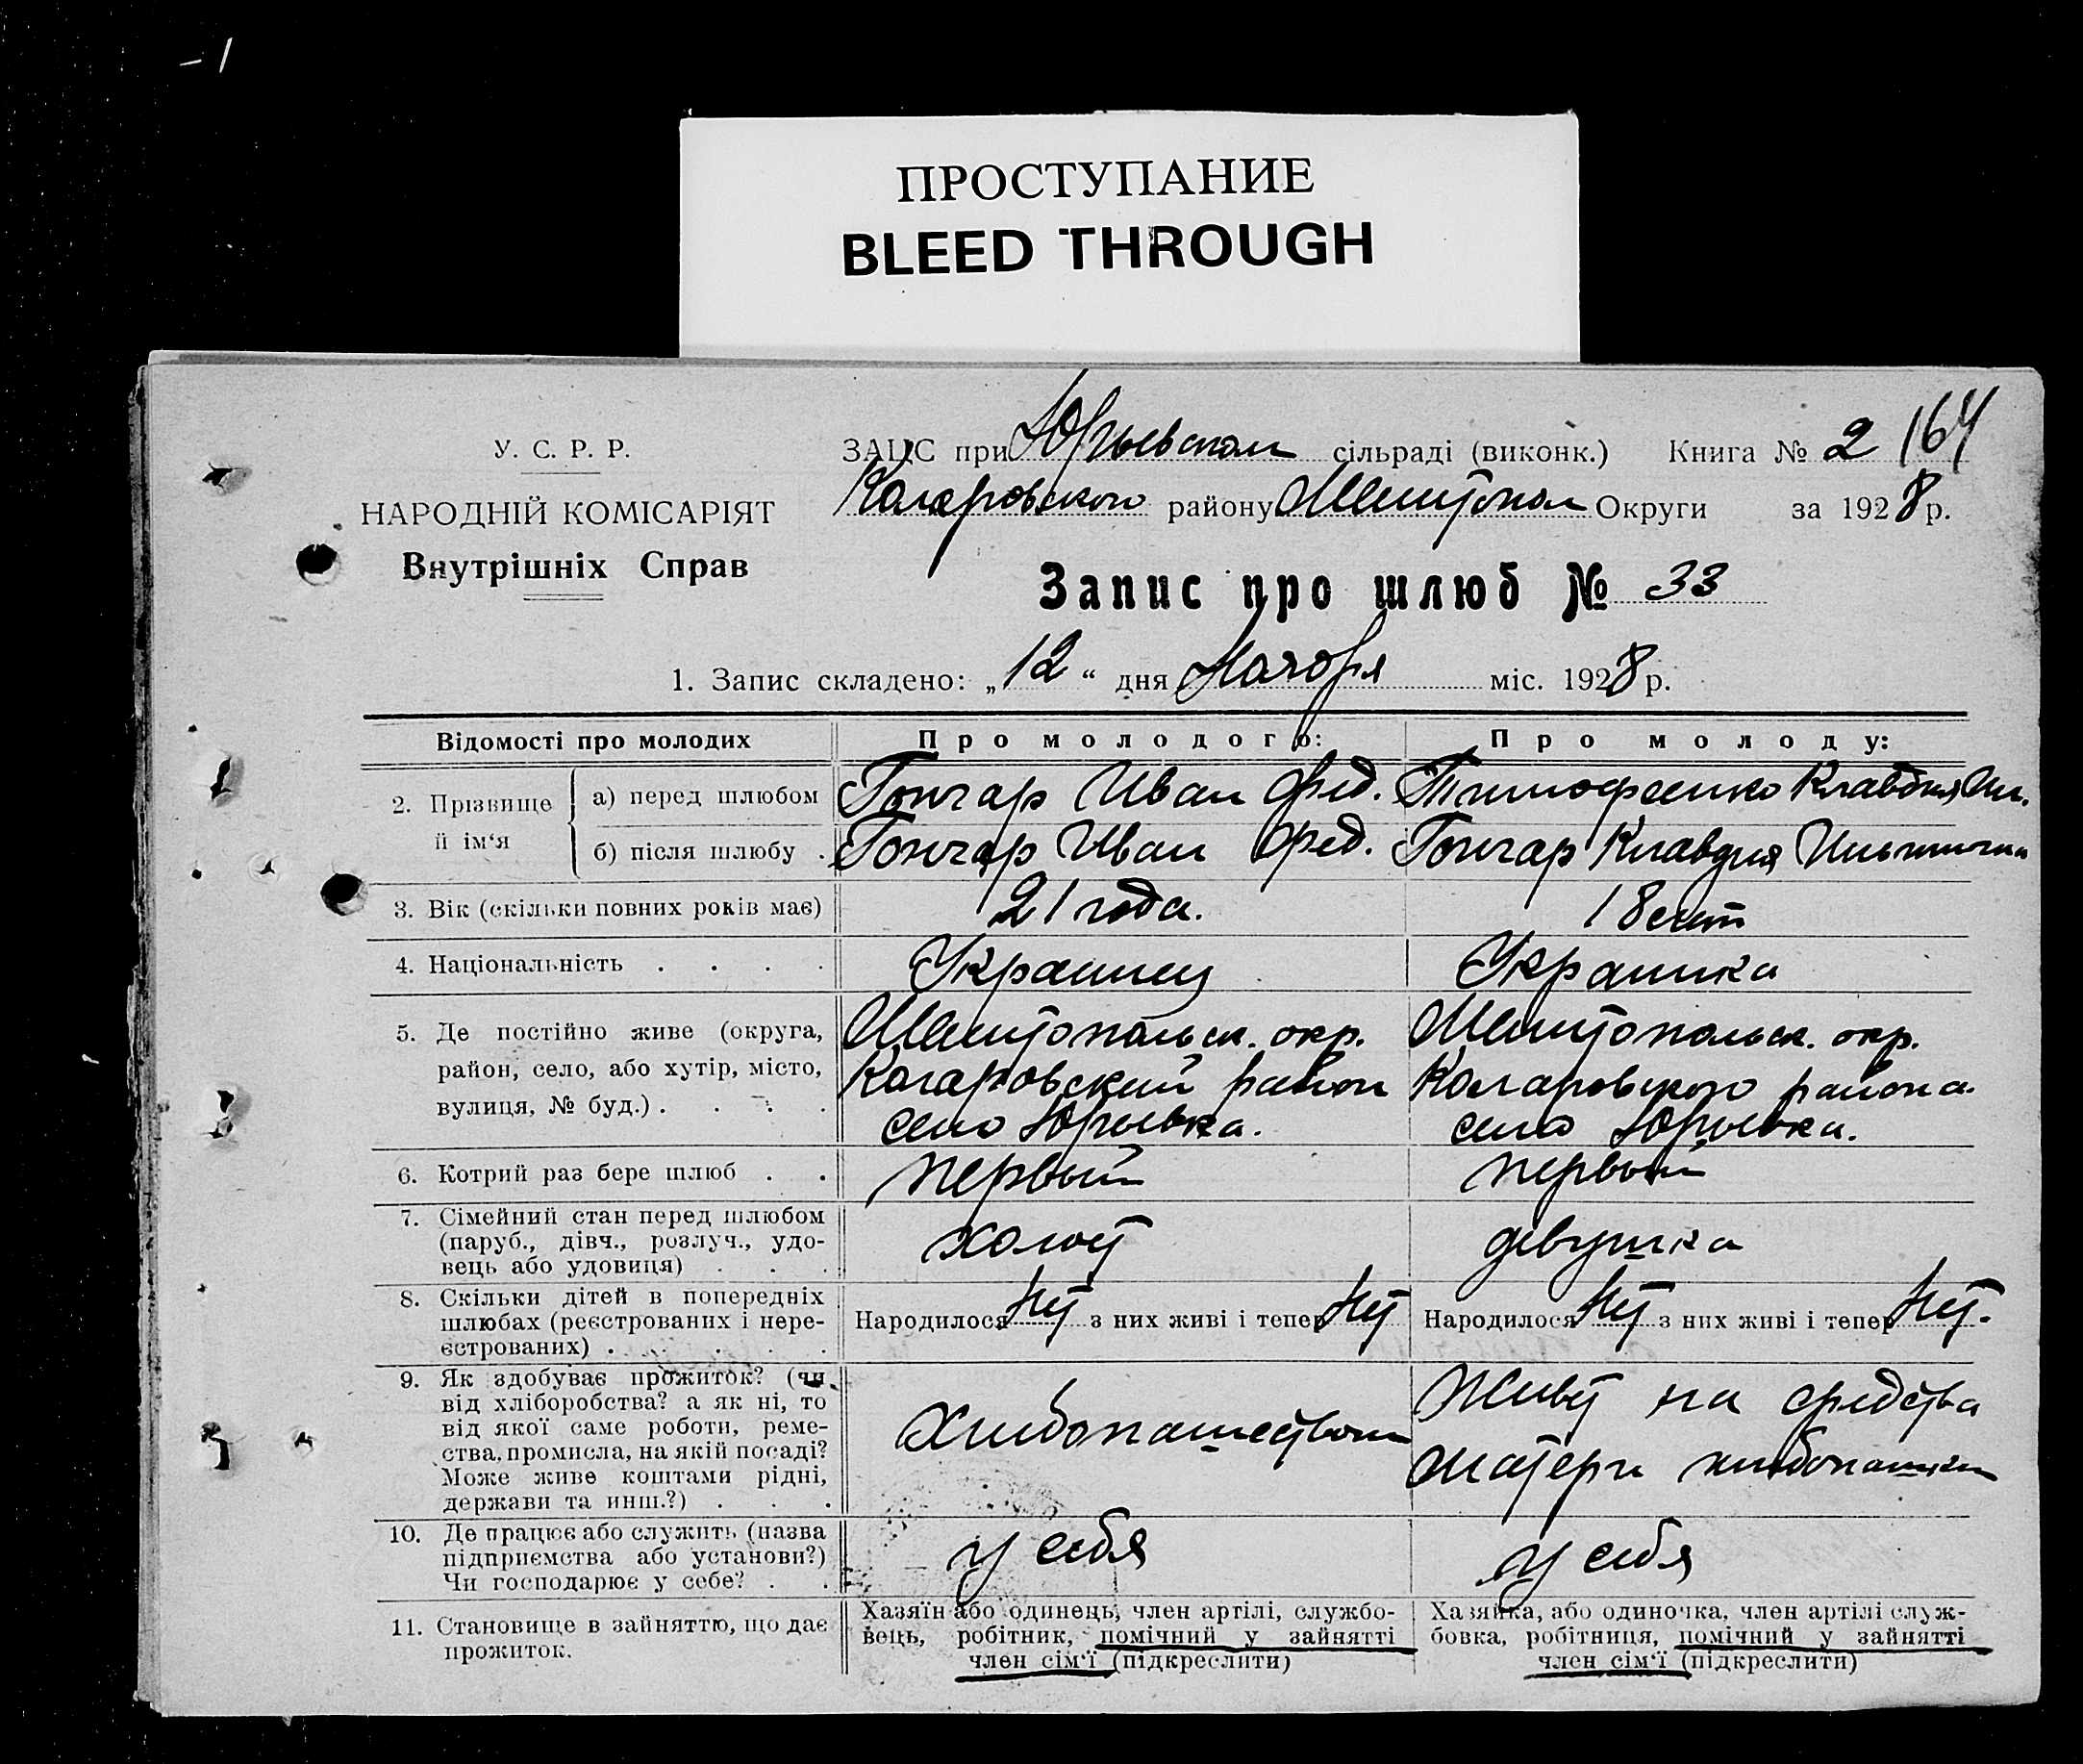 ПРОСТУПАНИЕ
BLEED THROUGH
У. С. Р. Р.
НАРОДНІЙ КОМІСАРІЯТ
Внутрішніх Справ
ЗАЦС при Юрьевском сільраді (виконк.) Книга № 2 164
Коларовского району Мелитопол Округи за 1928 р.
Запис про шлюб № 33
1. Запис складено: „12“ дня Ноября міс. 1928 р.
Відомості про молодих
Про молодого:
Про молоду:
2. Прізвище й ім‘я
а) перед шлюбом
Гончар Иван Фед.
Тимофеенко Клавдия Ил.
б) після шлюбу .
Гончар Иван Фед.
Гончар Клавдия Ильинична
3. Вік (скільки повних років має)
21 года.
18 лет
4. Національність . . . .
Украинец
Украинка
5. Де постійно живе (округа,
район, село, або хутір, місто,
вулиця, № буд.) . . . .
Мелитопольск. окр.
Коларовский район
село Юрьевка.
Мелитопольск. окр.
Коларовского района.
село Юрьевка.
6. Котрий раз бере шлюб . .
первый
первый
7. Сімейний стан перед шлюбом
(паруб., дівч., розлуч., удо-
вець або удовиця) . . .
холост
девушка
8. Скільки дітей в попередніх
шлюбах (реєстрованих і нере-
єстрованих) . . . . .
Народилося нет з них живі і тепер нет
Народилося нет з них живі і тепер нет.
9. Як здобуває прожиток? (чи
від хліборобства? а як ні, то
від якої саме роботи, реме-
ства, промисла, на якій посаді?
Може живе коштами рідні,
держави та инш.?) . . .
Хлебопашеством
Живет на средства
матери хлебопашки
10. Де працює або служить (назва
підприємства або установи?)
Чи господарює у себе? . .
у себя
у себя
11. Становище в зайняттю, що дає
прожиток.
Хазяїн або одинець, член артілі, службо-
вець, робітник, помічний у зайнятті
член сім‘ї (підкреслити)
Хазяйка, або одиночка, член артілі служ-
бовка, робітниця, помічний у зайнятті
член сім‘ї (підкреслити)